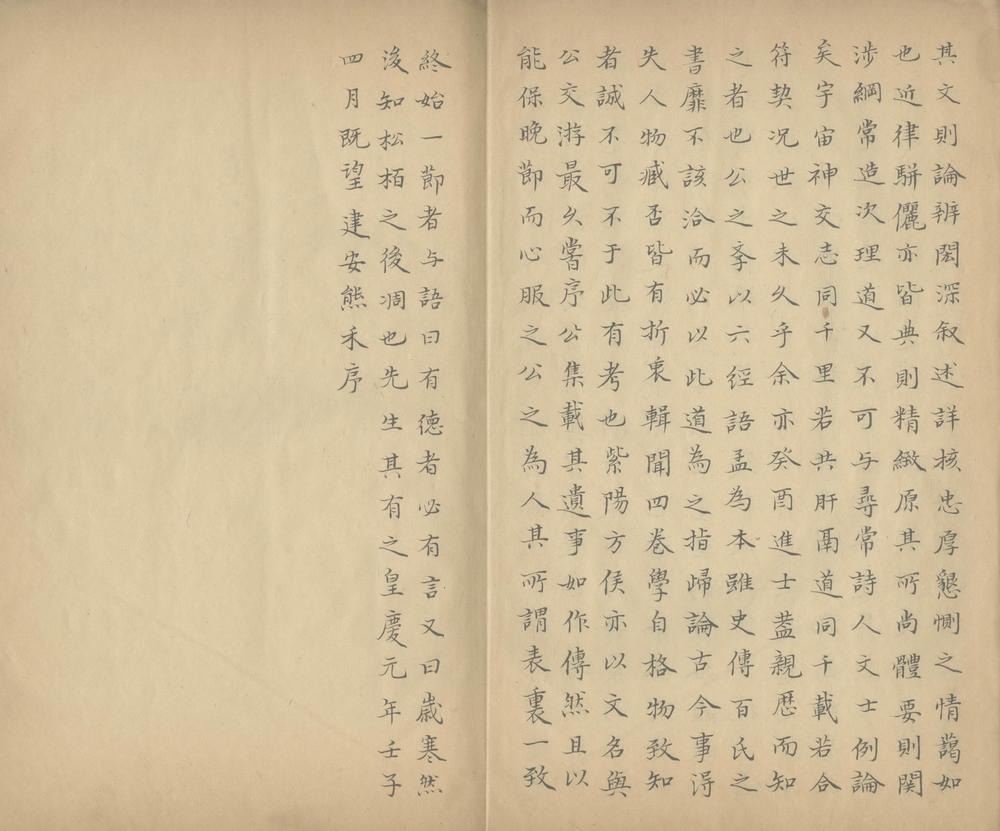 其文則論辨閎深叙述詳核忠厚懇惻之情藹如
也近律駢儷亦皆典則精緻原其所尚體要則関
涉綱常造次理道又不可与尋常詩人文士例論
矣宇宙神交志同千里若共肝鬲道同千載若合
符契况世之未久乎余亦癸酉進士葢親歴而知
之者也公之孝以六經語孟為本雖史傳百氏之
書靡不該洽而必以此道為之指歸論古今事得
失人物臧否皆有折衷輯聞四卷學自格物致知
者誠不可不于此有考也紫陽方侯亦以文名與
公交游最久嘗序公集載其遺事如作傳然且以
能保晚節而心服之公之為人其所謂表裏一致
終始一節者与語曰有德者必有言又曰嵗寒然
後知松栢之後凋也先生其有之皇慶元年壬子
四月既望建安熊禾序